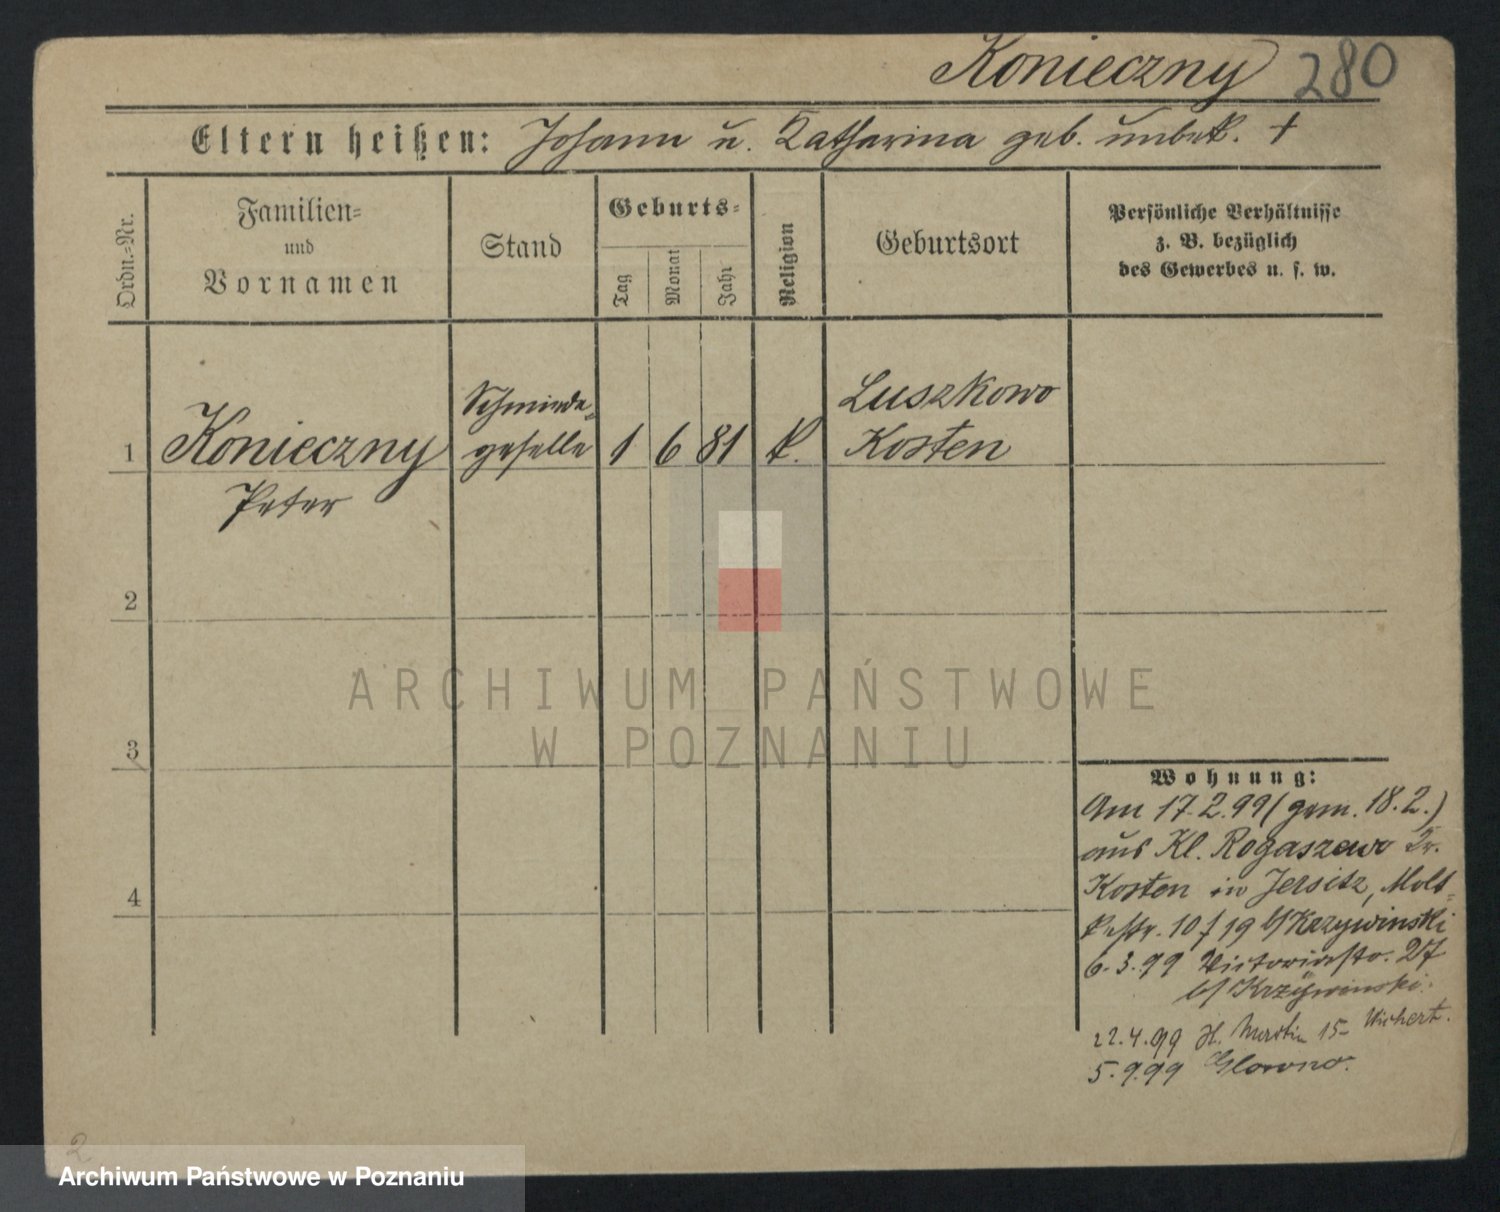 Konieczny 280
Eltern heißen: Johann u. Katharina geb. unbek. +
Ordn.=Nr.
Familien=
und
Vornamen
Stand
Geburts=
Tag
Monat
Jahr
Religion
Geburtsort
Persönliche Verhältnisse
z. B. bezüglich
des Gewerbes u. s. w.
1
Konieczny
Peter
Schmiede=
geselle
1 6 81 k.
Luszkowo
Kosten
2
3
4
ARCHIWUM PAŃSTWOWE
W POZNANIU
Wohnung:
Am 17.2.99 (gem. 18.2.)
aus Kl. Rogaszewo Kr.
Kosten in Jersitz, Molt-
kestr. 10 f 19 b/Krzywinski
6.3.99 Victoriastr. 27
b/Krzÿwinski.
22.4.99 H. Martin 15 Wichert.
5.9.99 Glowno.
2
Archiwum Państwowe w Poznaniu